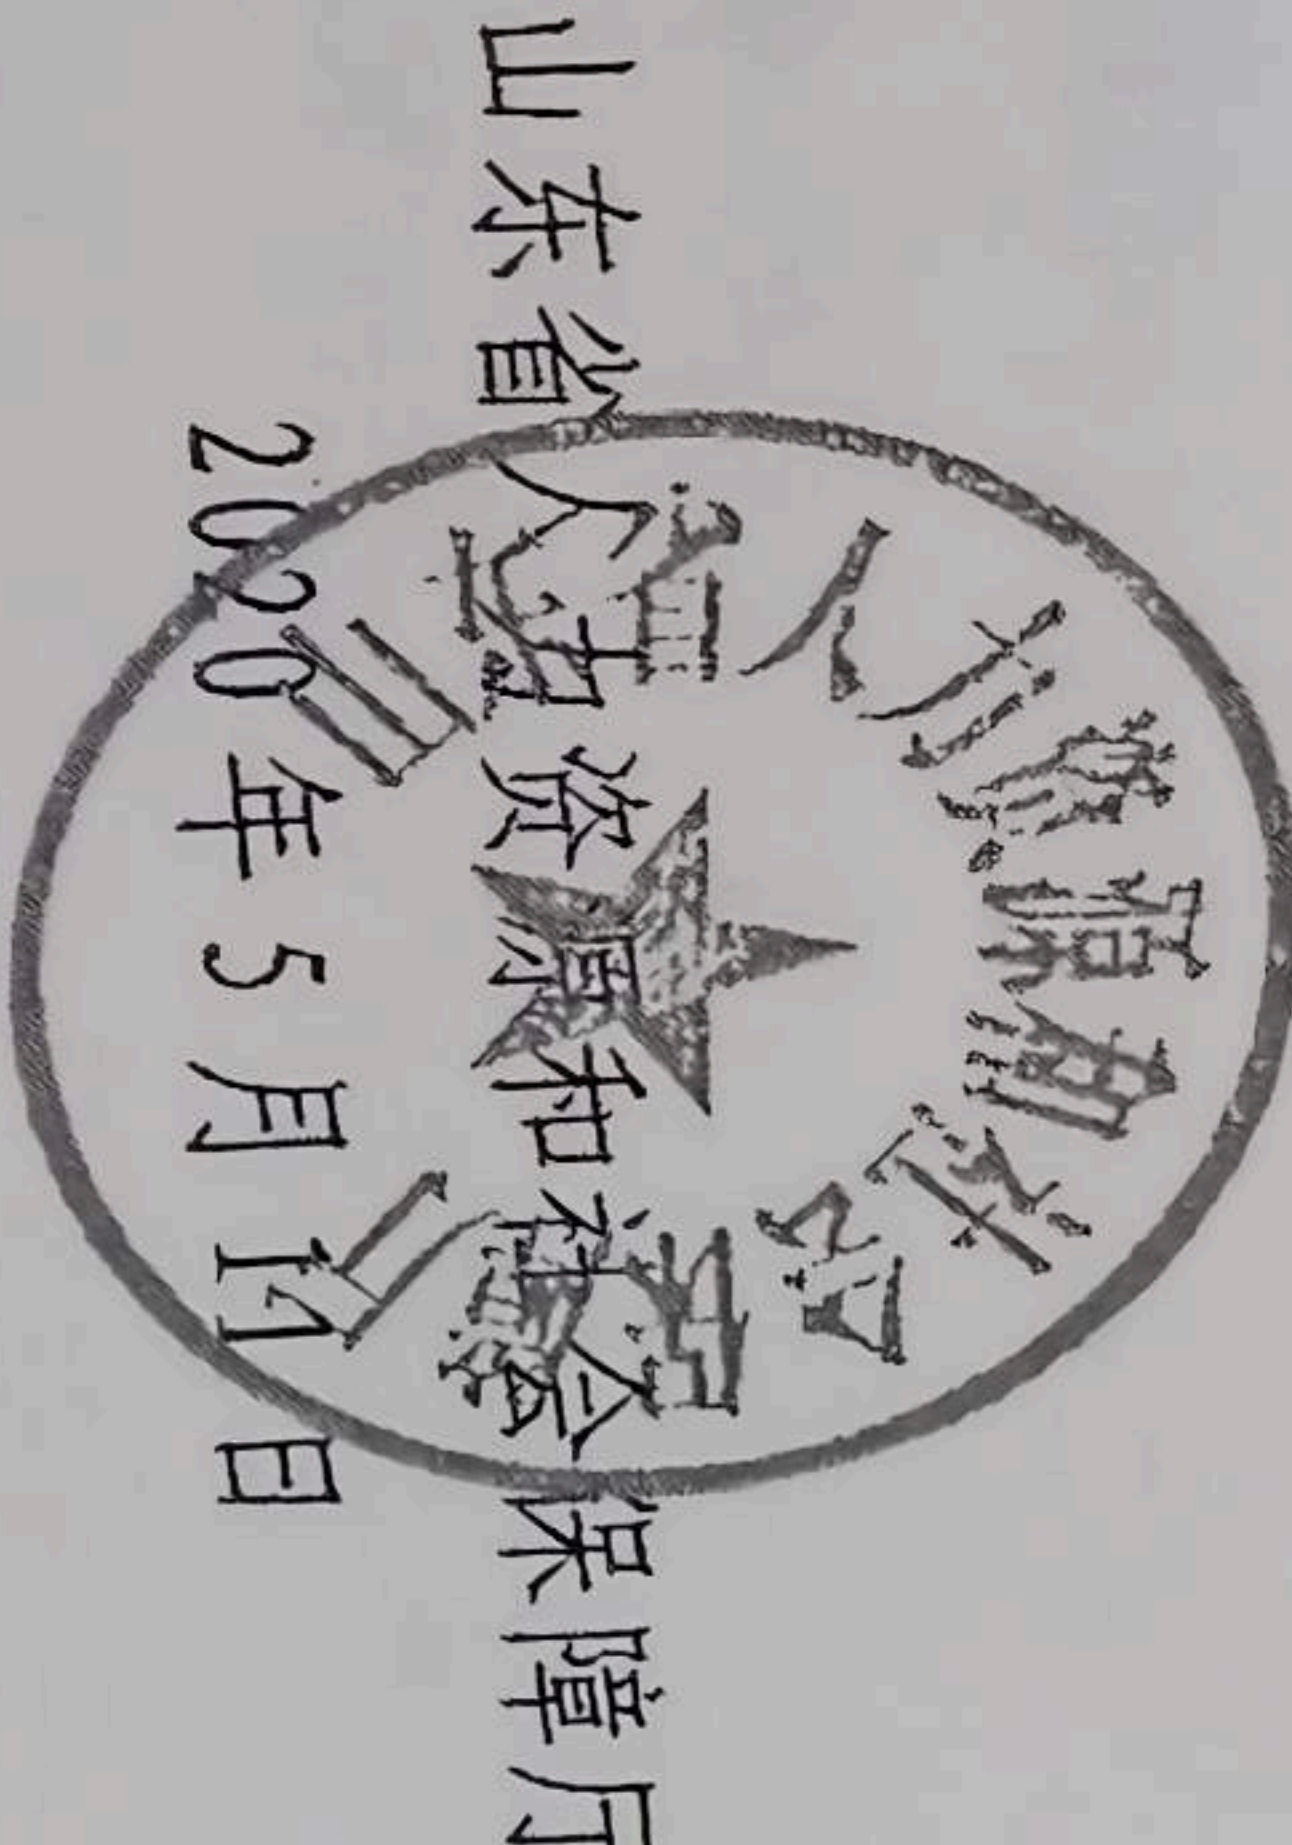 山东省人力资源和社会保障厅
2020年5月11日
山东省人力资源和社会保障厅